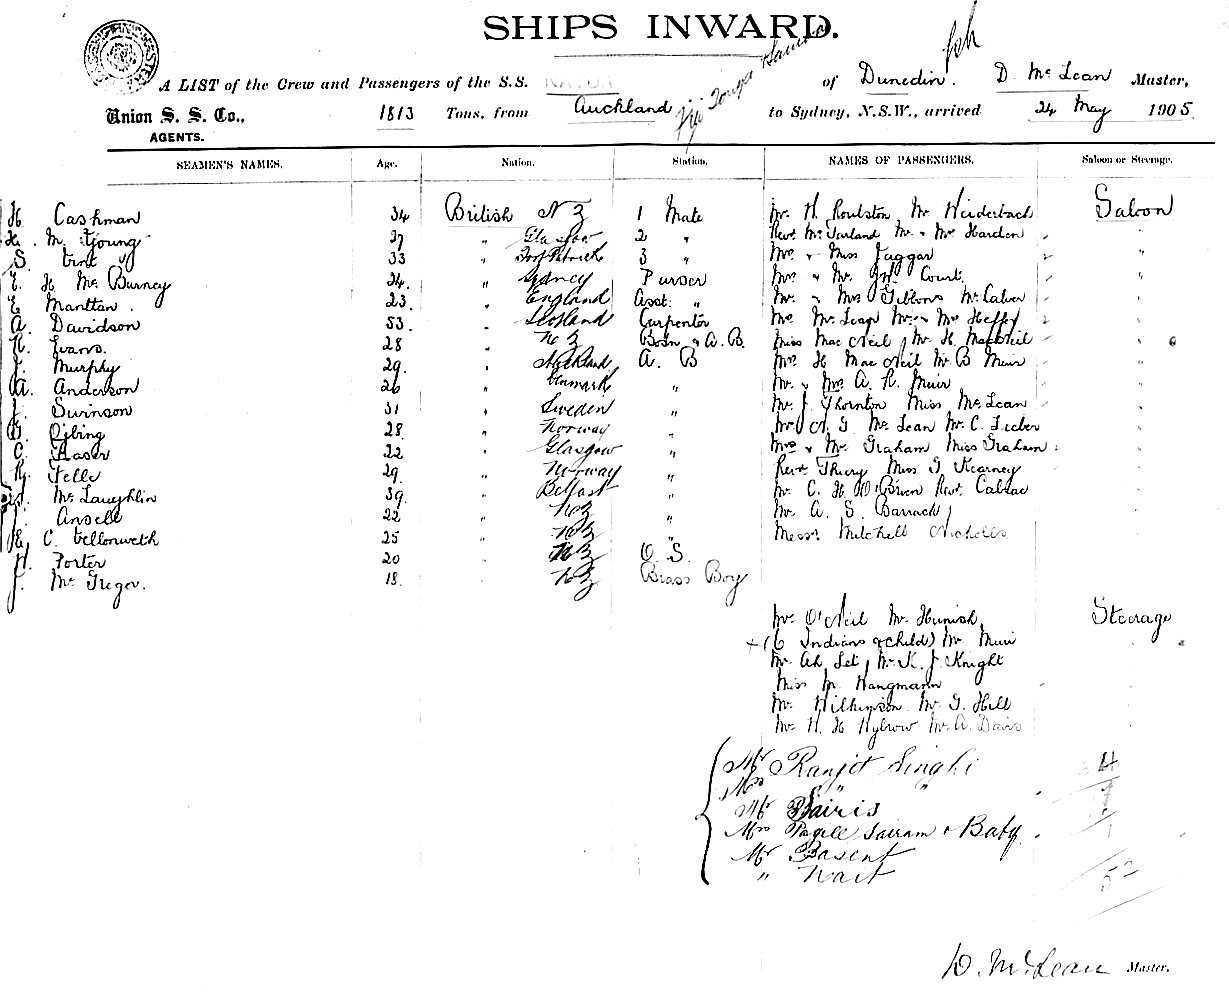 SHIPS INWARD.
A LIST of the Crew and Passengers of the S.S. NAVUA of Dunedin. D. McLean Master,
Union S. S. Co., 1813 Tons, from Auckland Fiji Tonga Samoa to Sydney, N.S.W., arrived 24 May 1905
AGENTS.
SEAMEN'S NAMES. Age. Nation. Station. NAMES OF PASSENGERS. Saloon or Steerage.
H. Cashman 34 British N Z 1 Mate Mr. H. Roulston Mr. Saloon
M. Young 37 " Glasgow 2 " Revd. McFarland Mr. & Mrs Harden "
S. 33 " Port Patrick 3 " Mrs & Miss Jaggar "
E. H McBurney 24. " Sydney Purser Mrs & Mr. Court. "
E Manttan. 23. " England Asst: " Mr. & Mrs Gibbons Mr. Calver "
A. Davidson 53. " Scotland Carpenter "
R. Evans. 28 " N Z Bosn & A. B. Miss MacNeil, Mr. H. MacNeil "
J. Murphy 29. " A. B Mrs. H MacNeil Mr. B Muir "
A. Anderson 26 " Denmark " Mr. & Mrs A. R. Muir "
J. Swinson 31 " Sweden " Mr. J. Thornton Miss McLean "
28 " Norway " Mr. A. G. McLean Mr. C.
C. Fraser 22 " Glasgow " Mrs & Mr. Graham Miss Graham
R. 29. " Norway " Revd. Thiery Miss G Kearney
McLaughlin 39. " Belfast " Mr. C. H O'Brien Revd.
J. Ansell 22 " N Z " Mr. A. S. Barrack
E. C. 25 " N Z " Messrs Mitchell Nicholls
H. Porter 20 " N Z O. S.
J. McGregor. 18. " N Z Brass Boy
Mr. O'Neil Mr. Steerage
+ (6 Indians & child) Mr. Muir "
Mr. Ah Set, Mr. K. J. Knight
Miss M. Wangmann
Mr. Wilkinson Mr. G. Hill
Mr. H. H Mr. A. Davis
Mr Ranjit Singhi
Mrs " "
Mr Bairis
Mrs Sairam & Baby.
Mr Basent
"
52
D. McLean Master.